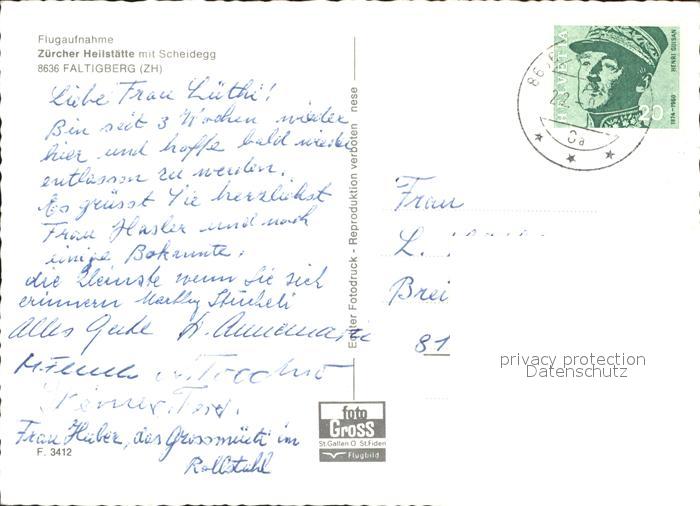 Flugaufnahme
Zürcher Heilstätte mit Scheidegg
8636 FALTIGBERG (ZH)
Liebe Frau Lüthi!
Bin seit 3 Wochen wieder
hier und hoffe bald wieder
entlassen zu werden.
Es grüsst Sie herzlichst
Frau Hasler und noch
einige Bekannte.
die Kleinste wenn Sie sich
erinnern Marthy Stucheli
Alles Gute Annemarie
Frau Huber, das Grossmüeti im
Rollstuhl
F. 3412
Echter Fotodruck - Reproduktion verboten
foto
GROSS
St.Gallen O St.Fiden
Flugbild
HELVETIA
HENRI GUISAN
1874-1960
20
Frau
L.
Brei
81
privacy protection
Datenschutz